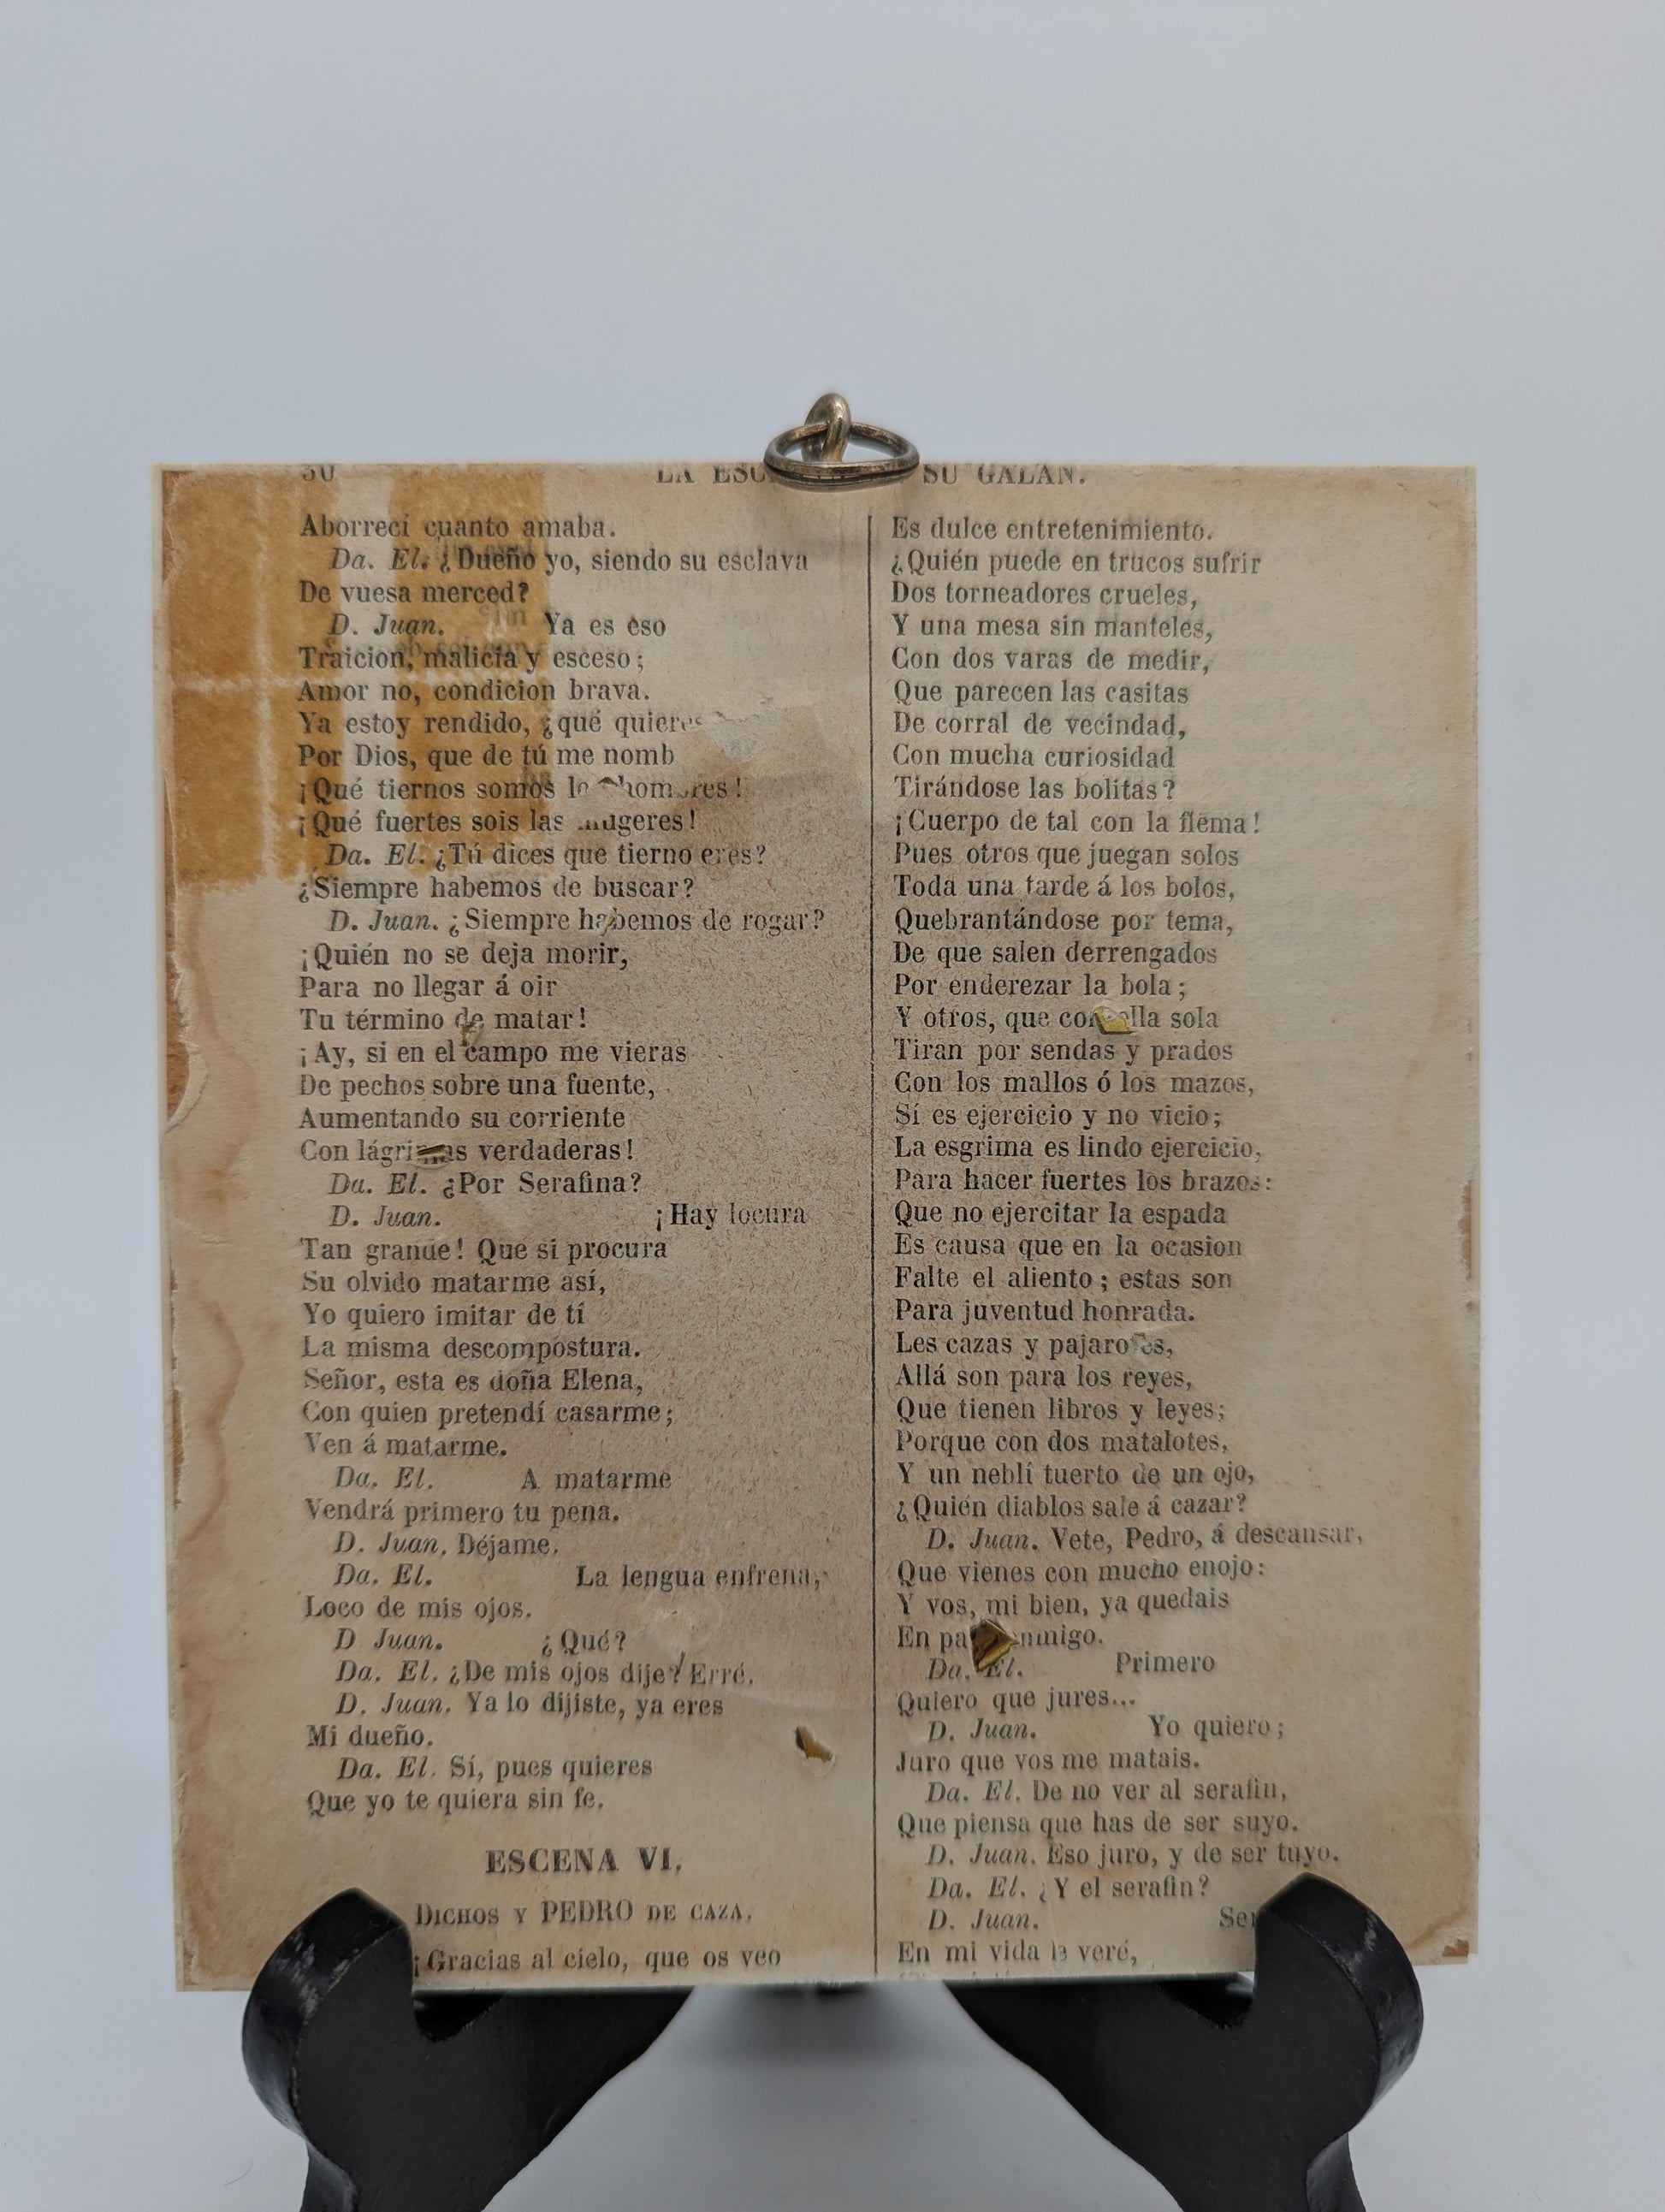 LA SU GALAN.
Aborrecí cuanto amaba.
Da. El. ¿Dueño yo, siendo su esclava
De vuesa merced?
D. Juan. Ya es eso
Traicion, malicia y esceso;
Amor no, condicion brava.
Ya estoy rendido, ¿qué
Por Dios, que de tú me nomb
¡Qué tiernos somos
¡Qué fuertes sois las
Da. El. ¿Tú dices que tierno eres?
¿Siempre habemos de buscar?
D. Juan. ¿Siempre habemos de rogar?
¡Quién no se deja morir,
Para no llegar á oir
Tu término de matar!
¡Ay, si en el campo me vieras
De pechos sobre una fuente,
Aumentando su corriente
Con verdaderas!
Da. El. ¿Por Serafina?
D. Juan. ¡Hay locura
Tan grande! Que si procura
Su olvido matarme así,
Yo quiero imitar de tí
La misma descompostura.
Señor, esta es doña Elena,
Con quien pretendí casarme;
Ven á matarme.
Da. El. A matarme
Vendrá primero tu pena.
D. Juan. Déjame.
Da. El. La lengua enfrena,
Loco de mis ojos.
D Juan. ¿Qué?
Da. El. ¿De mis ojos dije? Erré.
D. Juan. Ya lo dijiste, ya eres
Mi dueño.
Da. El. Sí, pues quieres
Que yo te quiera sin fe.
ESCENA VI.
DICHOS Y PEDRO DE CAZA.
¡Gracias al cielo, que os veo
Es dulce entretenimiento.
¿Quién puede en trucos sufrir
Dos torneadores crueles,
Y una mesa sin manteles,
Con dos varas de medir,
Que parecen las casitas
De corral de vecindad,
Con mucha curiosidad
Tirándose las bolitas?
¡Cuerpo de tal con la flema!
Pues otros que juegan solos
Toda una tarde á los bolos,
Quebrantándose por tema,
De que salen derrengados
Por enderezar la bola;
Y otros, que sola
Tiran por sendas y prados
Con los mallos ó los mazos,
Sí es ejercicio y no vicio;
La esgrima es lindo ejercicio,
Para hacer fuertes los brazos:
Que no ejercitar la espada
Es causa que en la ocasion
Falte el aliento; estas son
Para juventud honrada.
Les cazas y
Allá son para los reyes,
Que tienen libros y leyes;
Porque con dos matalotes,
Y un neblí tuerto de un ojo,
¿Quién diablos sale á cazar?
D. Juan. Vete, Pedro, á descansar,
Que vienes con mucho enojo:
Y vos, mi bien, ya quedais
En
Da. El. Primero
Quiero que jures...
D. Juan. Yo quiero;
Juro que vos me matais.
Da. El. De no ver al serafin,
Que piensa que has de ser suyo.
D. Juan. Eso juro, y de ser tuyo.
Da. El. ¿Y el serafin?
D. Juan.
En mi vida veré,